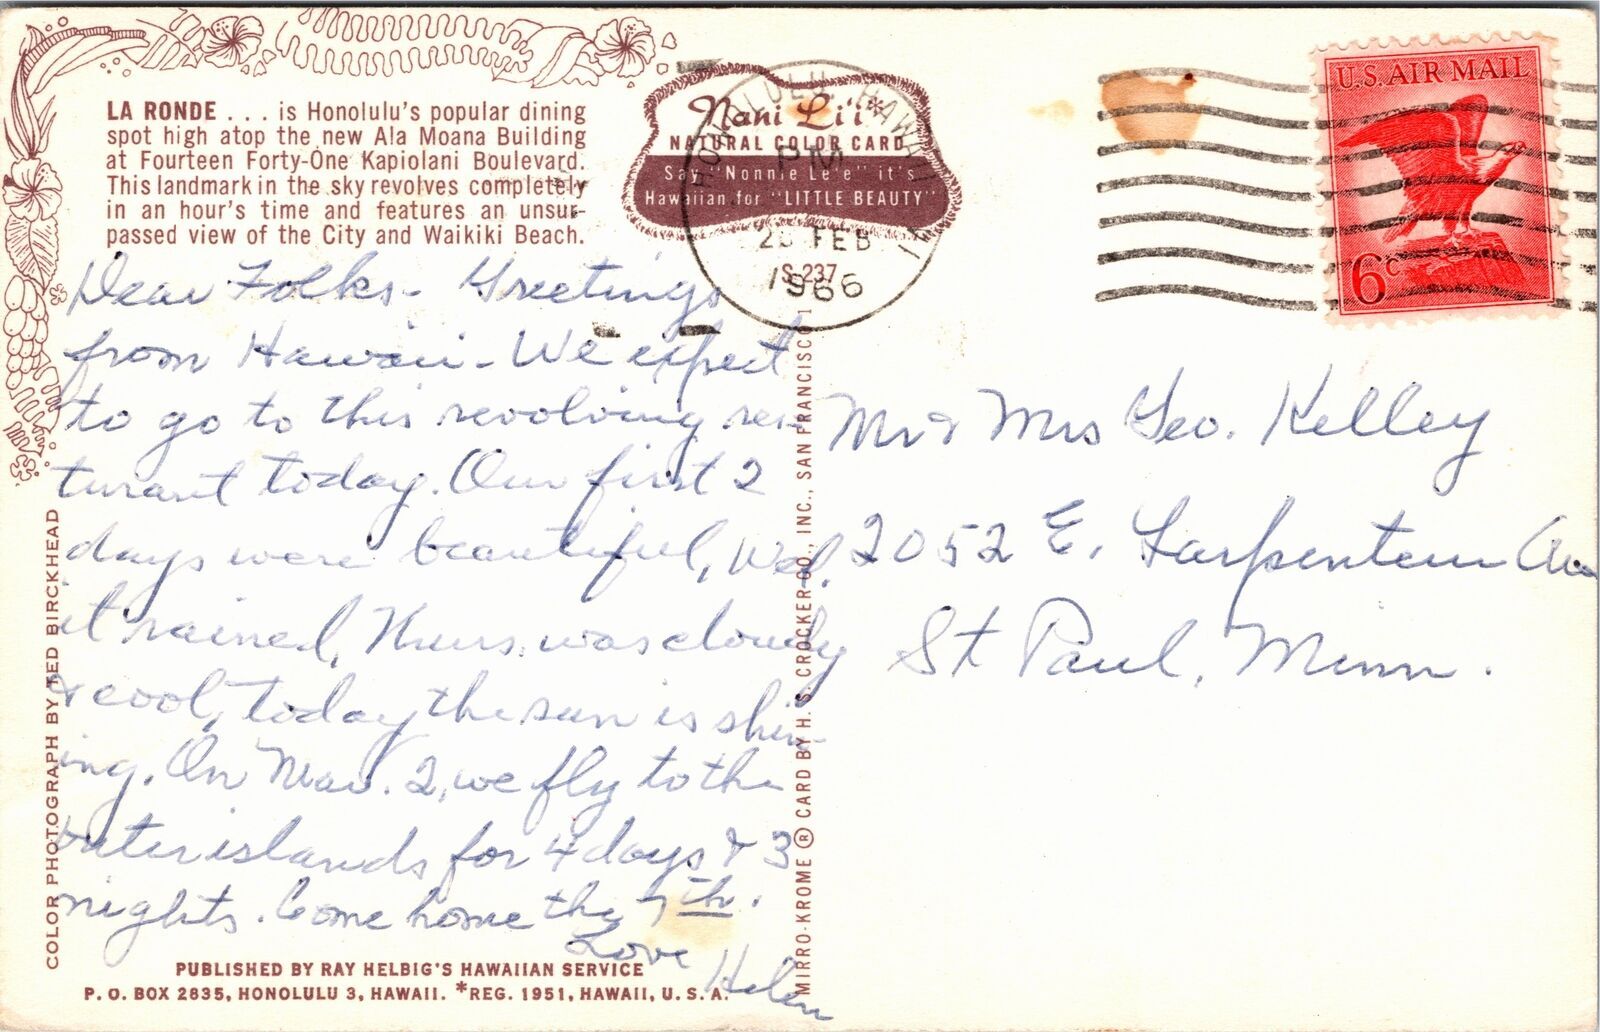 LA RONDE . . . is Honolulu's popular dining
spot high atop the new Ala Moana Building
at Fourteen Forty-One Kapiolani Boulevard.
This landmark in the sky revolves completely
in an hour's time and features an unsur-
passed view of the City and Waikiki Beach.
Nani Li'i*
NATURAL COLOR CARD
Say "Nonnie Le'e" it's
Hawaiian for "LITTLE BEAUTY"
S-237
HONOLULU HAWAII
PM
FEB
1966
U.S. AIR MAIL
6c
Dear Folks - Greetings
from Hawaii - We expect
to go to this revolving res-
turant today. Our first 2
days were beautiful, Wed.
it rained, Thurs. was cloudy
& cool, today the sun is shin-
ing. On Mar. 2, we fly to the
outer islands for 4 days & 3
nights. Come home the 7th.
Love
Helen
Mr & Mrs Geo. Kelley
2052 E. Larpenteur Ave
St Paul, Minn.
COLOR PHOTOGRAPH BY TED BIRCKHEAD
MIRRO-KROME ® CARD BY H. S. CROCKER CO., INC., SAN FRANCISCO 1
PUBLISHED BY RAY HELBIG'S HAWAIIAN SERVICE
P. O. BOX 2835, HONOLULU 3, HAWAII. *REG. 1951, HAWAII, U. S. A.